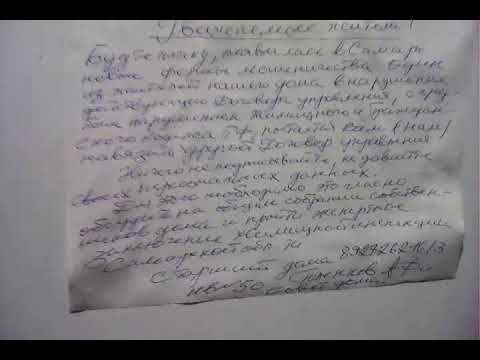 Уважаемые жители!
Будте , появилась в Самаре
новая форма мошенничества. Один
из жителей нашего дома в нарушение
действующего Договора управления, с гру-
бым нарушением Жилищного и Граждан-
ского кодекса РФ, пытается Вам (нам)
навязать другой Договор управления
Ничего не подписывайте, не давайте
своих персональных данных.
Для этого необходимо это гласно
обсудить на общем собрании собствен-
ников дома и пройти экспертное
заключение Жилищной инспекции
Самарской обл.
Старший дома
кв. 50
совет дома